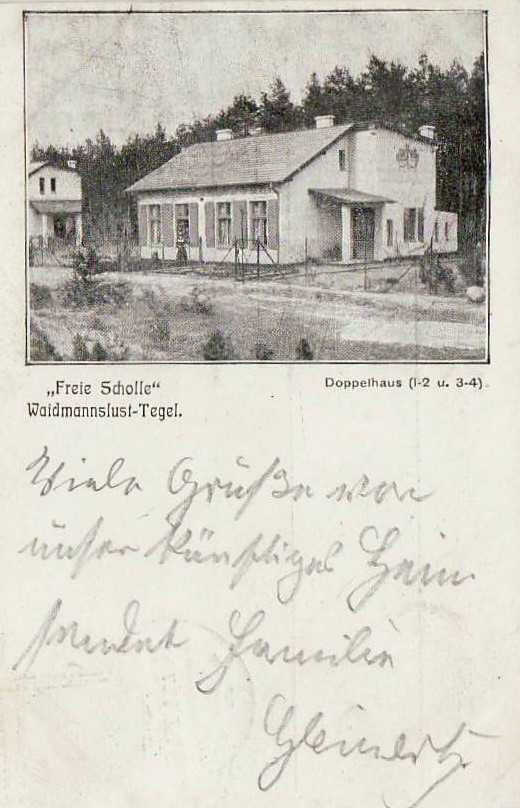 „Freie Scholle“
Waidmannslust-Tegel.
Doppelhaus (1-2 u. 3-4).
Viele Grüße von
unser künftiges Heim
sendet Familie